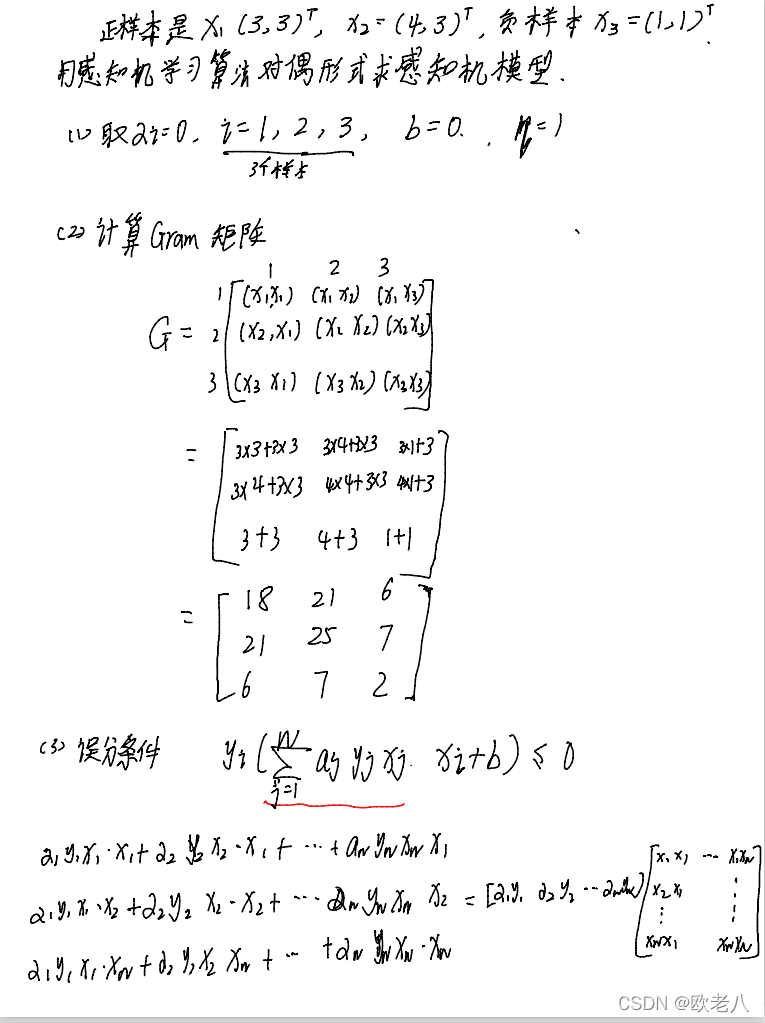 正样本是 x₁ (3,3)ᵀ, x₂=(4,3)ᵀ, 负样本 x₃=(1,1)ᵀ.
用感知机学习算法对偶形式求感知机模型.
(1) 取 αi=0. i=1, 2, 3, b=0. , η=1
3个样本
(2) 计算Gram 矩阵
1 2 3
G= 1 [(x₁,x₁) (x₁ x₂) (x₁ x₃)
2 (x₂,x₁) (x₂ x₂) (x₂x₃)
3 (x₃ x₁) (x₃ x₂) (x₃x₃)]
= [3×3+3×3 3×4+3×3 3×1+3
3×4+3×3 4×4+3×3 4×1+3
3+3 4+3 1+1]
= [18 21 6
21 25 7
6 7 2]
(3) 误分条件 yi (∑ⱼ₌₁ᴺ aj yj xj · xi+b) ≤ 0
α₁y₁x₁·x₁+α₂ y₂ x₂·x₁+ ⋯ +αN yN xN x₁
α₁y₁x₁·x₂+α₂y₂ x₂·x₂+ ⋯ αN yN xN x₂ = [α₁y₁ α₂y₂ ⋯αNyN] [x₁x₁ ⋯ x₁xN
x₂x₁ ⋮
⋮ ⋮
xNx₁ xNxN]
α₁y₁x₁·xN+α₂y₂x₂ xN + ⋯ +αN yN xN·xN
CSDN @欧老八